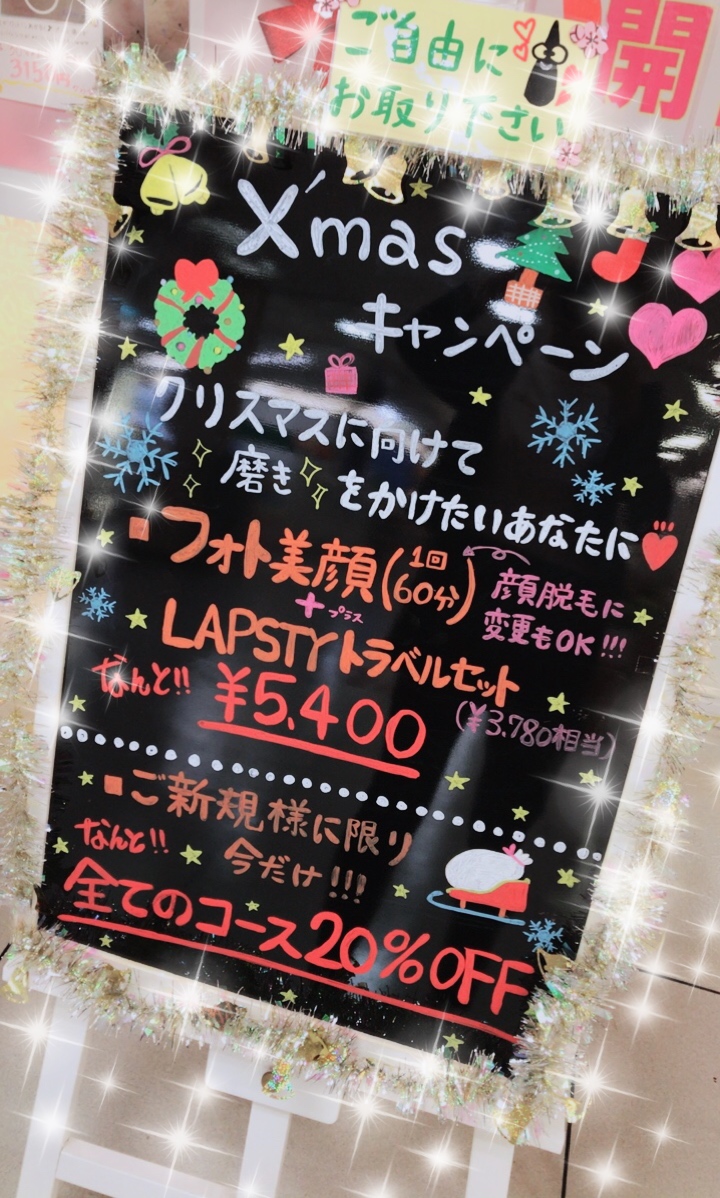 3150円
ご自由に
お取り下さい
開
X'mas
キャンペーン
クリスマスに向けて
磨きをかけたいあなたに
■フォト美顔(1回60分)
顔脱毛に
変更もOK!!!
+プラス
LAPSTYトラベルセット
なんと!! ¥5,400
(¥3.780相当)
■ご新規様に限り
なんと!! 今だけ!!!
全てのコース20%OFF